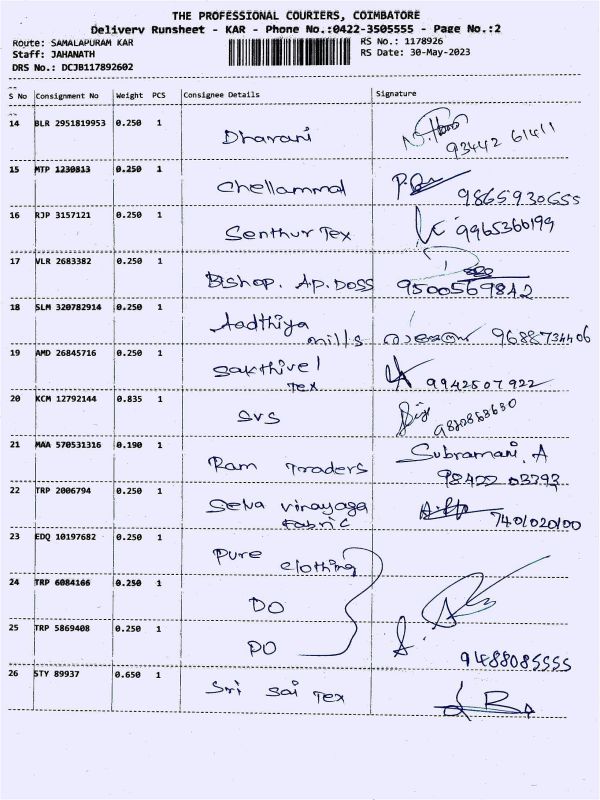 THE PROFESSIONAL COURIERS, COIMBATORE
Delivery Runsheet - KAR - Phone No.:0422-3505555 - Page No.:2
Route: SAMALAPURAM KAR RS No.: 1178926
Staff: JAHANATH RS Date: 30-May-2023
DRS No.: DCJB117892602
S No Consignment No Weight PCS Consignee Details Signature
14 BLR 2951819953 0.250 1 Dharani
93442 61411
15 MTP 1230813 0.250 1 Chellammal
9865930555
16 RJP 3157121 0.250 1 Senthur Tex 9965366199
17 VLR 2683382 0.250 1 Bishop. Ap. Doss 9500569842
18 SLM 320782914 0.250 1 Aadthiya
mills 9688734406
19 AMD 26845716 0.250 1 Sakthivel
Tex 9942507922
20 KCM 12792144 0.835 1 SVS
21 MAA 570531316 0.190 1 Ram Traders Subramani. A
98422 03793
22 TRP 2006794 0.250 1 Selva Vinayaga
Fabric 7401020100
23 EDQ 10197682 0.250 1 Pure Clothing
24 TRP 6084166 0.250 1 DO
25 TRP 5869408 0.250 1 DO
9488085555
26 STY 89937 0.650 1 Sri Sai Tex